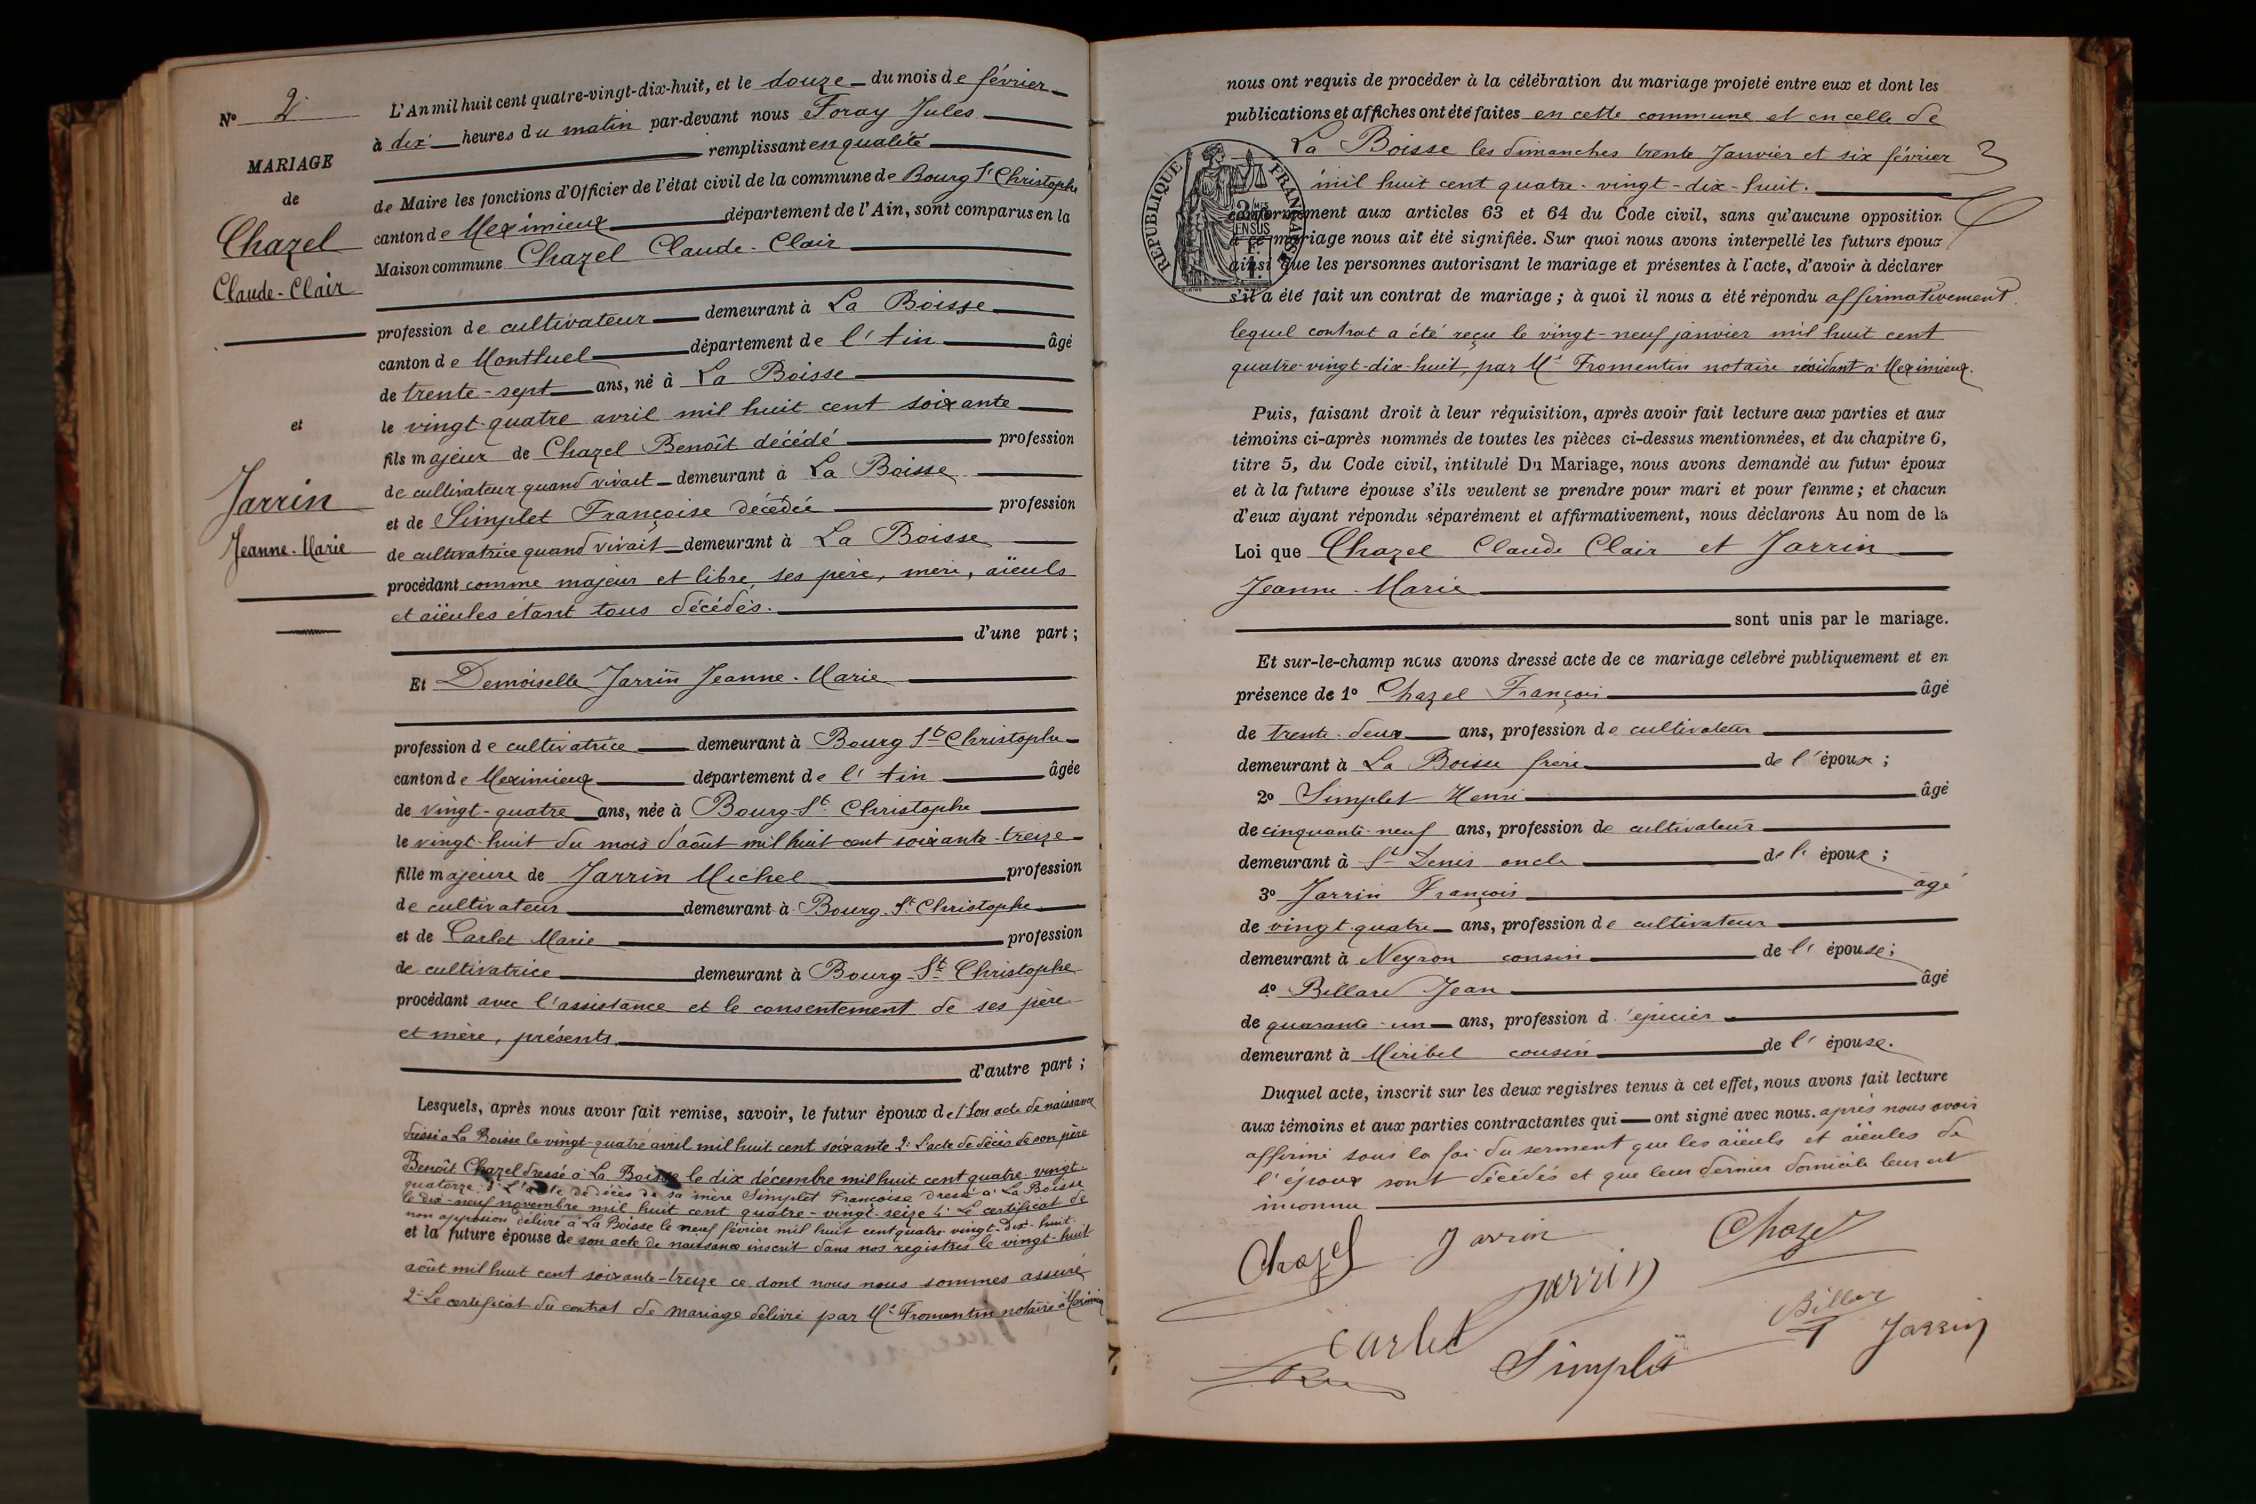 No 2
MARIAGE
de
Chazel
Claude-Clair
et
Jarrin
Jeanne-Marie
L'An mil huit cent quatre-vingt-dix-huit, et le douze du mois de février
à dix heures du matin par-devant nous Foray Jules
remplissant en qualité
de Maire les fonctions d'Officier de l'état civil de la commune de Bourg St Christophe
canton de Meximieux département de l'Ain, sont comparus en la
Maison commune Chazel Claude-Clair
profession de cultivateur demeurant à La Boisse
canton de Montluel département de l'Ain âgé
de trente-sept ans, né à La Boisse
le vingt-quatre avril mil huit cent soixante
fils majeur de Chazel Benoît décédé profession
de cultivateur quand vivait demeurant à La Boisse
et de Simplet Françoise décédée profession
de cultivatrice quand vivait demeurant à La Boisse
procédant comme majeur et libre, ses père, mère, aïeuls
et aïeules étant tous décédés.
d'une part ;
Et Demoiselle Jarrin Jeanne-Marie
profession de cultivatrice demeurant à Bourg St Christophe
canton de Meximieux département de l'Ain âgée
de vingt-quatre ans, née à Bourg-St Christophe
le vingt-huit du mois d'août mil huit cent soixante-treize
fille majeure de Jarrin Michel profession
de cultivateur demeurant à Bourg-St Christophe
et de Carlet Marie profession
de cultivatrice demeurant à Bourg-St Christophe
procédant avec l'assistance et le consentement de ses père
et mère, présents.
d'autre part ;
Lesquels, après nous avoir fait remise, savoir, le futur époux de 1° son acte de naissance
dressé à La Boisse le vingt-quatre avril mil huit cent soixante 2° L'acte de décès de son père
Benoît Chazel dressé à La Boisse le dix décembre mil huit cent quatre-vingt-
quatorze 3° L'acte de décès de sa mère Simplet Françoise dressé à La Boisse
le dix-neuf novembre mil huit cent quatre-vingt-seize 4° Le certificat de
non opposion délivré à La Boisse le neuf février mil huit cent quatre-vingt-dix-huit.
et la future épouse de son acte de naissance inscrit dans nos registres le vingt-huit
août mil huit cent soixante-treize ce dont nous nous sommes assuré
2° Le certificat du contrat de mariage délivré par Me Fromentin notaire à Meximieux
nous ont requis de procéder à la célébration du mariage projeté entre eux et dont les
publications et affiches ont été faites en cette commune et en celle de
La Boisse les dimanches trente Janvier et six février
mil huit cent quatre-vingt-dix-huit.
REPUBLIQUE FRANÇAISE
conformément aux articles 63 et 64 du Code civil, sans qu'aucune opposition
à ce mariage nous ait été signifiée. Sur quoi nous avons interpellé les futurs époux
ainsi que les personnes autorisant le mariage et présentes à l'acte, d'avoir à déclarer
s'il a été fait un contrat de mariage ; à quoi il nous a été répondu affirmativement.
lequel contrat a été reçu le vingt-neuf janvier mil huit cent
quatre-vingt-dix-huit, par Me Fromentin notaire résidant à Meximieux.
Puis, faisant droit à leur réquisition, après avoir fait lecture aux parties et aux
témoins ci-après nommés de toutes les pièces ci-dessus mentionnées, et du chapitre 6,
titre 5, du Code civil, intitulé Du Mariage, nous avons demandé au futur époux
et à la future épouse s'ils veulent se prendre pour mari et pour femme ; et chacun
d'eux ayant répondu séparément et affirmativement, nous déclarons Au nom de la
Loi que Chazel Claude Clair et Jarrin
Jeanne-Marie
sont unis par le mariage.
Et sur-le-champ nous avons dressé acte de ce mariage célébré publiquement et en
présence de 1° Chazel François âgé
de trente-deux ans, profession de cultivateur
demeurant à La Boisse frère de l'époux ;
2° Simplet Henri âgé
de cinquante-neuf ans, profession de cultivateur
demeurant à St Denis oncle de l'époux ;
3° Jarrin François âgé
de vingt-quatre ans, profession de cultivateur
demeurant à Neyron cousin de l'épouse ;
4° Billard Jean âgé
de quarante-un ans, profession d'épicier
demeurant à Miribel cousin de l'épouse.
Duquel acte, inscrit sur les deux registres tenus à cet effet, nous avons fait lecture
aux témoins et aux parties contractantes qui ont signé avec nous. après nous avoir
affirmé sous la foi du serment que les aïeuls et aïeules de
l'époux sont décédés et que leur dernier domicile leur est
inconnu
Chazel Jarrin Chazel
Jarrin
Carlet Simplet Billard Jarrin